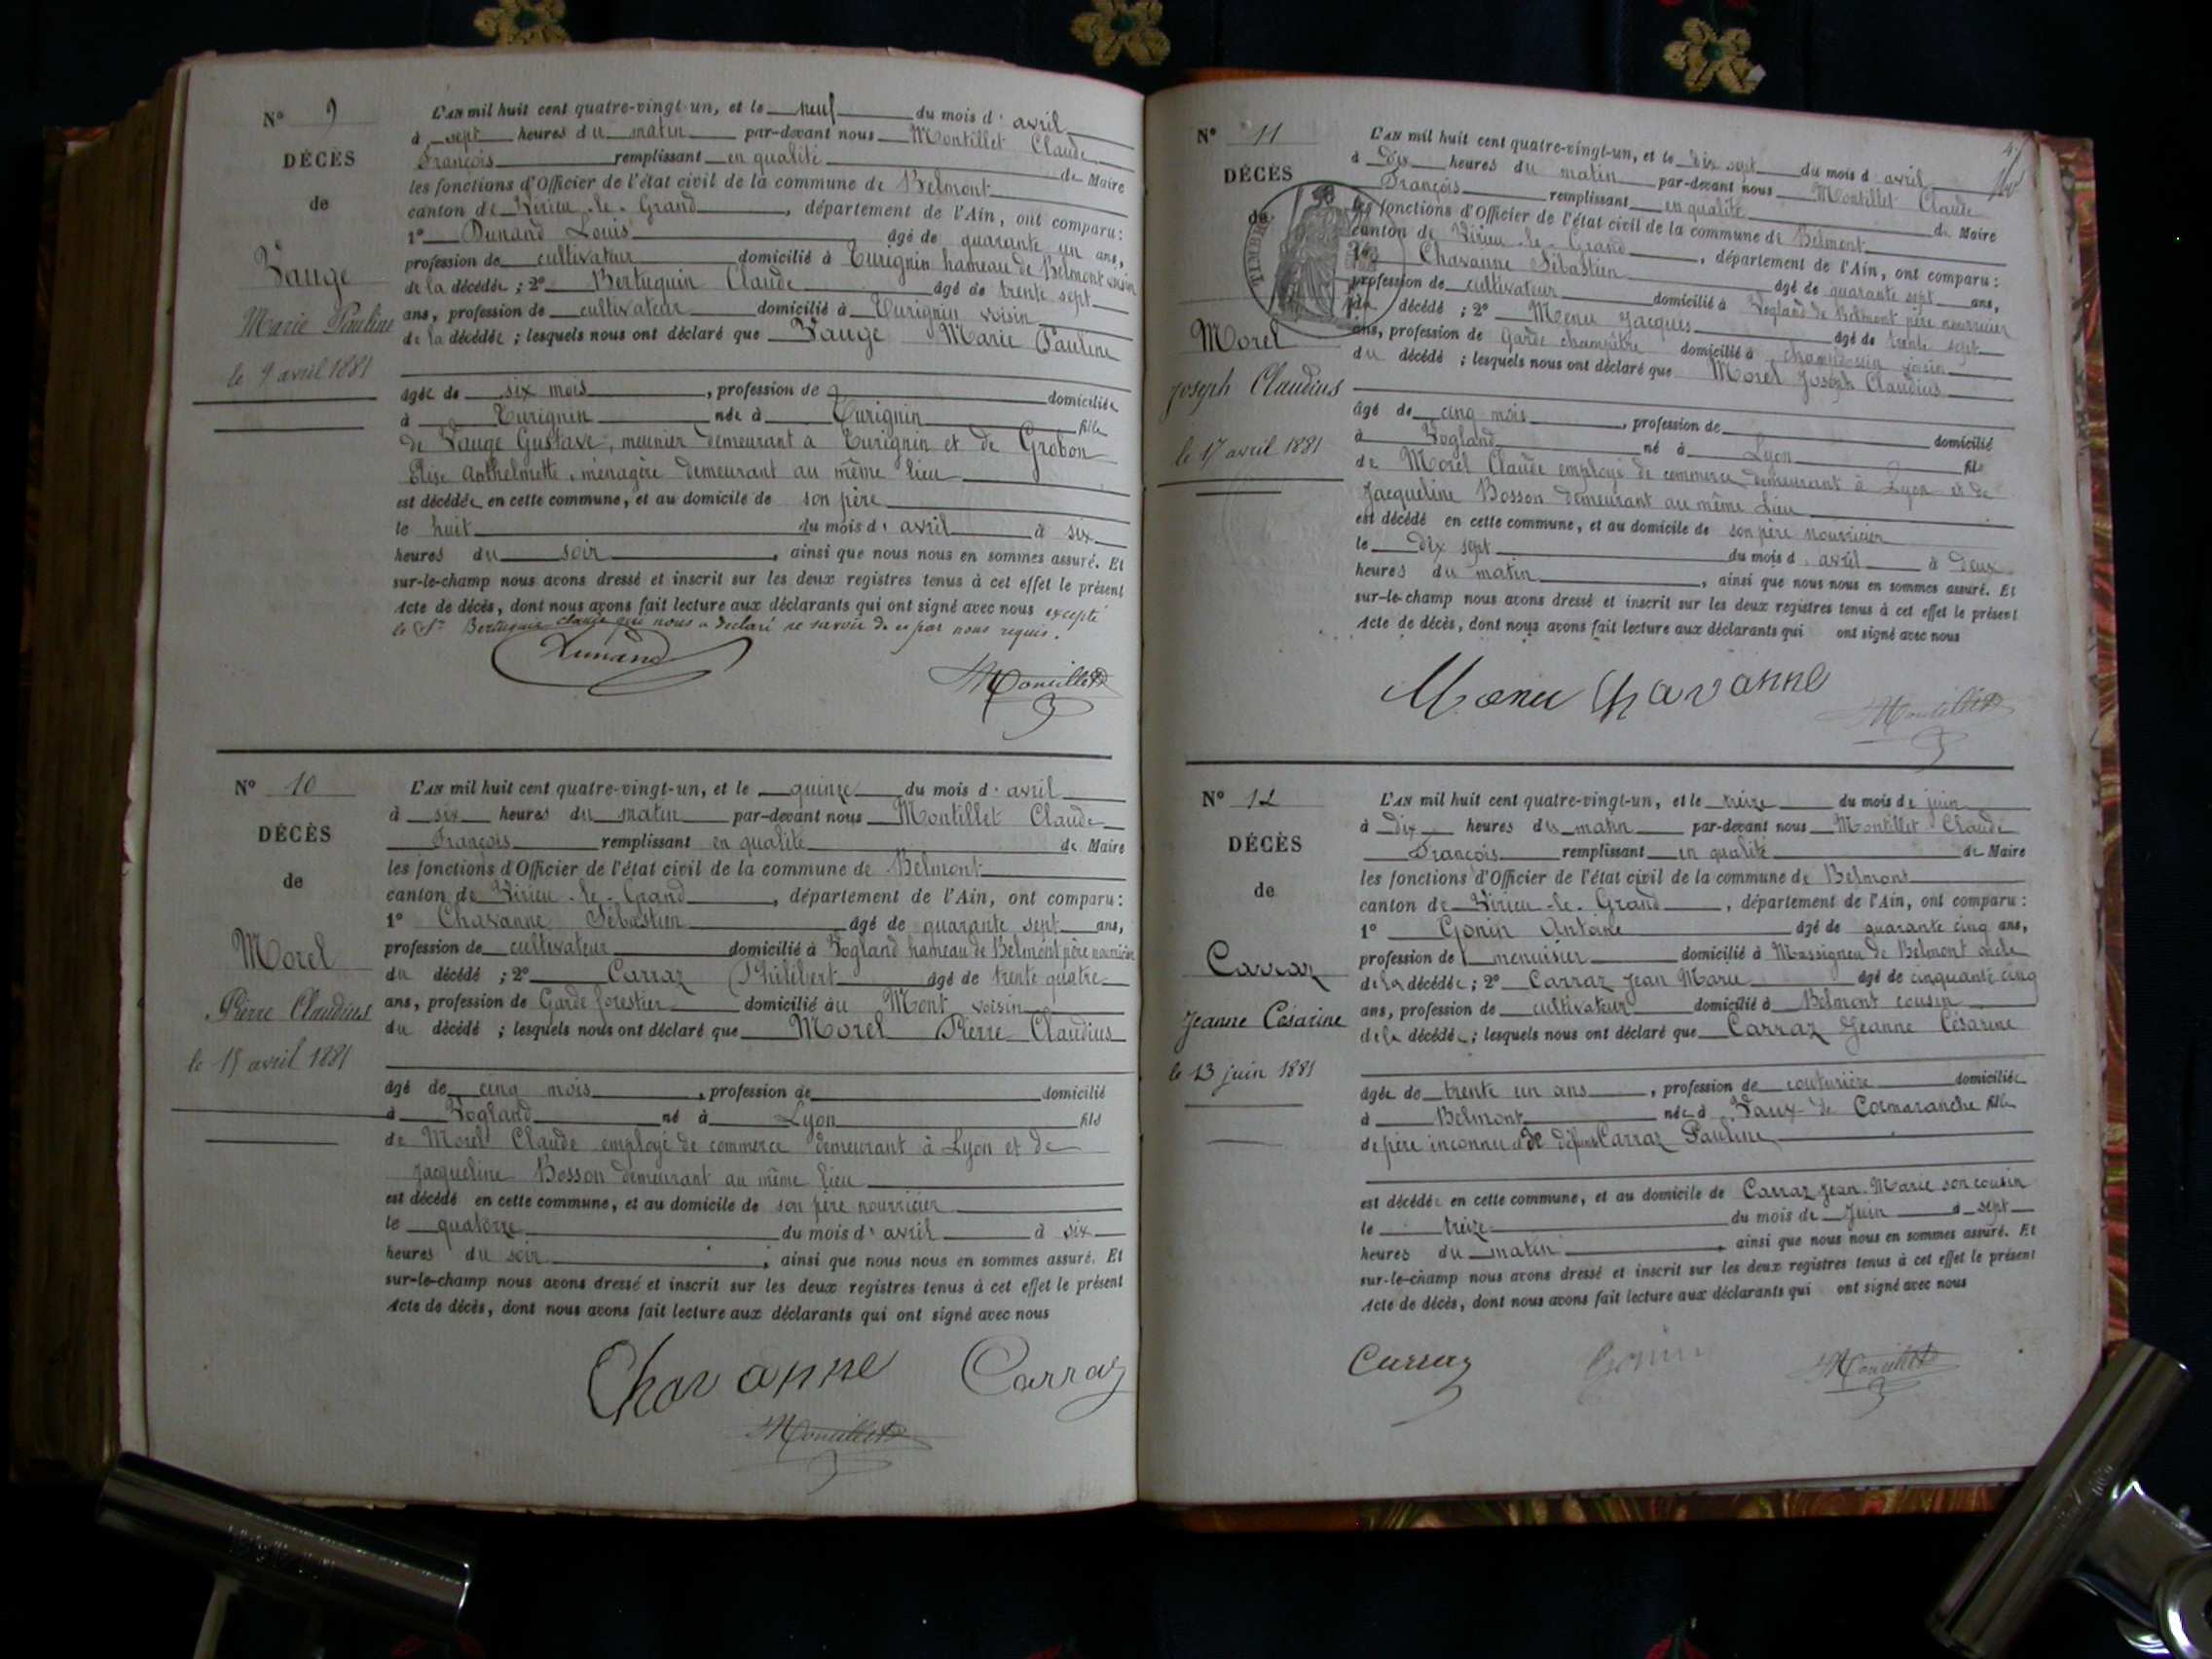 N° 9
DÉCÈS
de
Vauge
Marie Pauline
le 9 avril 1881
L'AN mil huit cent quatre-vingt-un, et le neuf du mois d' avril
à sept heures du matin par-devant nous Montillet Claude
François remplissant en qualité de Maire
les fonctions d'Officier de l'état civil de la commune de Belmont
canton de Virieu-le-Grand, département de l'Ain, ont comparu:
1° Dunand Louis âgé de quarante un ans,
profession de cultivateur domicilié à Turignin hameau de Belmont voisin
de la décédée ; 2° Bertuquin Claude âgé de trente sept
ans, profession de cultivateur domicilié à Turignin voisin
de la décédée ; lesquels nous ont déclaré que Vauge Marie Pauline
âgée de six mois, profession de domiciliée
à Turignin née à Turignin fille
de Vauge Gustave, meunier demeurant à Turignin et de Grobon
Elise Anthelmette, ménagère demeurant au même lieu
est décédée en cette commune, et au domicile de son père
le huit du mois d' avril à six
heures du soir, ainsi que nous nous en sommes assuré. Et
sur-le-champ nous avons dressé et inscrit sur les deux registres tenus à cet effet le présent
Acte de décès, dont nous avons fait lecture aux déclarants qui ont signé avec nous excepté
le Sr Bertuquin Claude qui nous a déclaré ne savoir de ce par nous requis.
Dunand
Montillet
N° 10
DÉCÈS
de
Morel
Pierre Claudius
le 15 avril 1881
L'AN mil huit cent quatre-vingt-un, et le quinze du mois d' avril
à six heures du matin par-devant nous Montillet Claude
François remplissant en qualité de Maire
les fonctions d'Officier de l'état civil de la commune de Belmont
canton de Virieu-le-Grand, département de l'Ain, ont comparu:
1° Chavanne Sébastien âgé de quarante sept ans,
profession de cultivateur domicilié à Vogland hameau de Belmont père nourricier
du décédé ; 2° Carraz Philibert âgé de trente quatre
ans, profession de Garde forestier domicilié au Mont voisin
du décédé ; lesquels nous ont déclaré que Morel Pierre Claudius
âgé de cinq mois, profession de domicilié
à Vogland né à Lyon fils
de Morel Claude employé de commerce demeurant à Lyon et de
Jacqueline Bosson demeurant au même lieu
est décédé en cette commune, et au domicile de son père nourricier
le quatorze du mois d' avril à six
heures du soir, ainsi que nous nous en sommes assuré. Et
sur-le-champ nous avons dressé et inscrit sur les deux registres tenus à cet effet le présent
Acte de décès, dont nous avons fait lecture aux déclarants qui ont signé avec nous
Chavanne Carraz
Montillet
N° 11
DÉCÈS
de
TIMBRE
Morel
Joseph Claudius
le 17 avril 1881
L'AN mil huit cent quatre-vingt-un, et le dix sept du mois d' avril
à dix heures du matin par-devant nous Montillet Claude
François remplissant en qualité de Maire
les fonctions d'Officier de l'état civil de la commune de Belmont
canton de Virieu-le-Grand, département de l'Ain, ont comparu:
1° Chavanne Sébastien âgé de quarante sept ans,
profession de cultivateur domicilié à Vogland de Belmont père nourricier
du décédé ; 2° Menu Jacques âgé de trente sept
ans, profession de Garde champêtre domicilié à voisin
du décédé ; lesquels nous ont déclaré que Morel Joseph Claudius
âgé de cinq mois, profession de domicilié
à Vogland né à Lyon fils
de Morel Claude employé de commerce demeurant à Lyon et de
Jacqueline Bosson demeurant au même lieu
est décédé en cette commune, et au domicile de son père nourricier
le dix sept du mois d' avril à deux
heures du matin, ainsi que nous nous en sommes assuré. Et
sur-le-champ nous avons dressé et inscrit sur les deux registres tenus à cet effet le présent
Acte de décès, dont nous avons fait lecture aux déclarants qui ont signé avec nous
Menu Chavanne
Montillet
N° 12
DÉCÈS
de
Carraz
Jeanne Césarine
le 13 juin 1881
L'AN mil huit cent quatre-vingt-un, et le treize du mois de juin
à dix heures du matin par-devant nous Montillet Claude
François remplissant en qualité de Maire
les fonctions d'Officier de l'état civil de la commune de Belmont
canton de Virieu-le-Grand, département de l'Ain, ont comparu:
1° Gonin Antoine âgé de quarante cinq ans,
profession de menuisier domicilié à Massignieu de Belmont oncle
de la décédée ; 2° Carraz Jean Marie âgé de cinquante cinq
ans, profession de cultivateur domicilié à Belmont cousin
de la décédée ; lesquels nous ont déclaré que Carraz Jeanne Césarine
âgée de trente un ans, profession de couturière domiciliée
à Belmont née à Vaux de Cormaranche fille
de père inconnu et de défunte Carraz Pauline
est décédée en cette commune, et au domicile de Carraz Jean-Marie son cousin
le treize du mois de Juin à sept
heures du matin, ainsi que nous nous en sommes assuré. Et
sur-le-champ nous avons dressé et inscrit sur les deux registres tenus à cet effet le présent
Acte de décès, dont nous avons fait lecture aux déclarants qui ont signé avec nous
Carraz Gonin Montillet